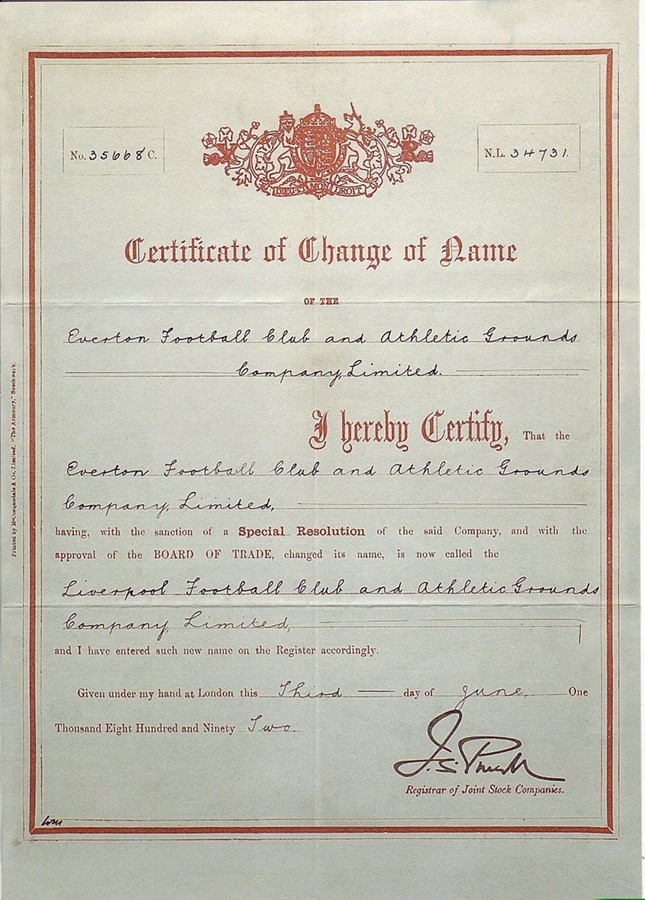 No. 35668 C.
N.L. 34731.
DIEU ET MON DROIT
Certificate of Change of Name
OF THE
Everton Football Club and Athletic Grounds
Company, Limited.
I hereby Certify, That the
Everton Football Club and Athletic Grounds
Company, Limited,
having, with the sanction of a Special Resolution of the said Company, and with the
approval of the BOARD OF TRADE, changed its name, is now called the
Liverpool Football Club and Athletic Grounds
Company, Limited,
and I have entered such new name on the Register accordingly.
Given under my hand at London this Third day of June One
Thousand Eight Hundred and Ninety Two.
J.S. Purcell
Registrar of Joint Stock Companies.
Printed by McCorquodale & Co., Limited, "The Armoury," Southwark.